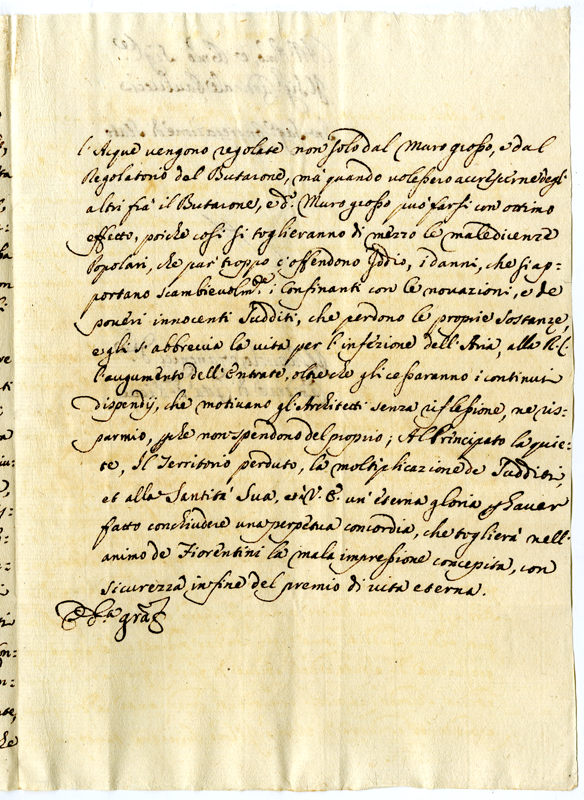 l'Acque vengono regolate non solo dal Muro grosso, e dal
Regolatorio del Butarone, ma quando volessero accrescerne degl'
altri frà il Butarone, e d.º Muro grosso può farsi con ottimo
effetto, poiche così si toglieranno di mezzo le maledicenze
Popolari, che pur troppo c'offendono Iddio, i danni, che si ap=
portano scambievolm.te i Confinanti con le novazioni, e de
poveri innocenti Sudditi, che perdono le proprie sostanze,
e gli s'abbrevia la vita per l'infezione dell'Aria, alla R. C.
l'augumento dell'Entrate, oltre che gli cessaranno i continui
dispendij, che motivano gl'Architetti senza riflessione, ne ris=
parmio, pche non spendono del proprio; Al Principato la quie=
te, il Territorio perduto, la moltiplicazione de Sudditi,
et alla Santità Sua, e à V. E. un'eterna gloria p haver
fatto conchiudere una perpetua concordia, che toglierà nell'
animo de Fiorentini la mala impressione concepita, con
sicurezza in fine del premio di vita eterna.